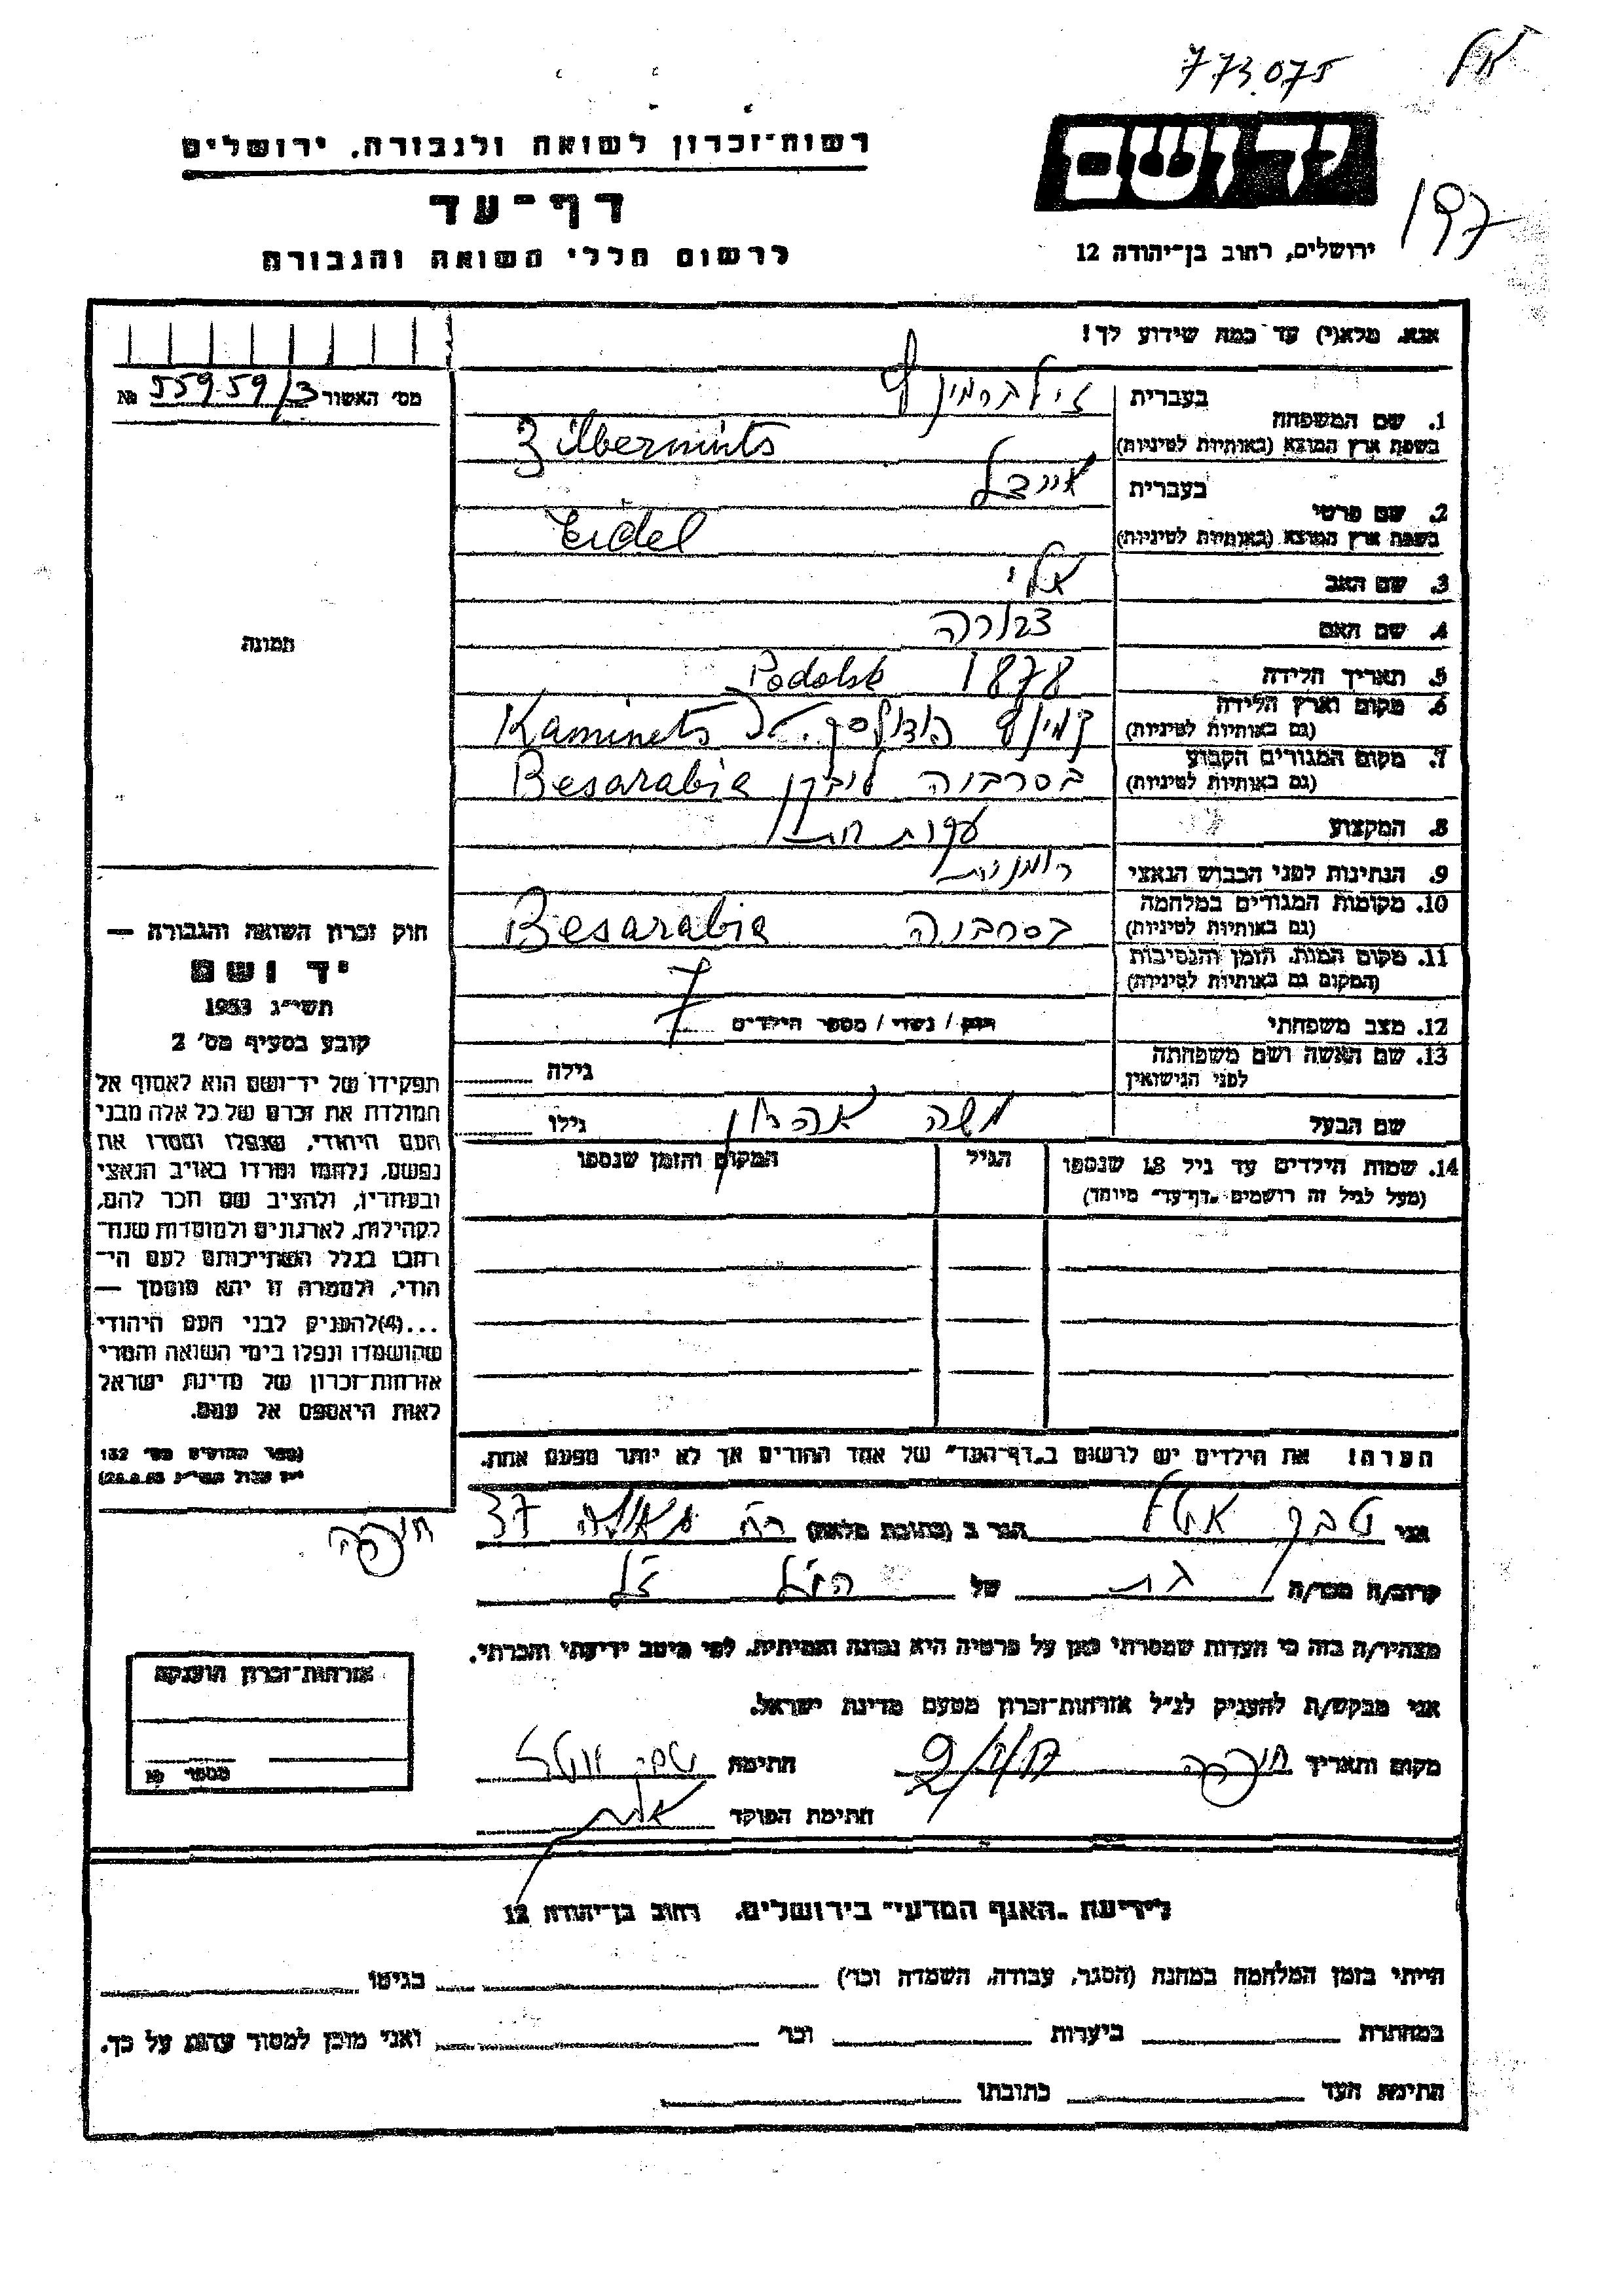 773.075
יד ושם
197
ירושלים, רחוב בן-יהודה 12
רשות-זכרון לשואה ולגבורה, ירושלים
דף-עד
לרשום חללי השואה והגבורה
אנא, מלא(י) עד כמה שידוע לך!
מס' האשור 559.59/3 №
1. שם המשפחה
בעברית
בשפת ארץ המוצא (באותיות לטיניות) Zilbermints
2. שם פרטי
בעברית איידל
בשפת ארץ המוצא (באותיות לטיניות) Eidel
3. שם האב אלי
4. שם האם דבורה
5. תאריך הלידה 1878
6. מקום וארץ הלידה (גם באותיות לטיניות) Kaminets Podolsk
7. מקום המגורים הקבוע (גם באותיות לטיניות) בסרביה Besarabia
8. המקצוע עקרת בית
9. הנתינות לפני הכבוש הנאצי רומנית
10. מקומות המגורים במלחמה (גם באותיות לטיניות) בסרביה Besarabia
11. מקום המות, הזמן והנסיבות (המקום גם באותיות לטיניות)
12. מצב משפחתי רווק / נשוי / מספר הילדים 7
13. שם האשה ושם משפחתה לפני הנישואין גילה
שם הבעל משה אהרון גילו
14. שמות הילדים עד גיל 18 שנספו
(מעל לגיל זה רושמים "דף-עד" מיוחד)
הגיל
המקום והזמן שנספו
תמונה
חוק זכרון השואה והגבורה —
יד ושם
תשי"ג 1953
קובע בסעיף מס' 2
תפקידו של יד-ושם הוא לאסוף אל
המולדת את זכרם של כל אלה מבני
העם היהודי, שנפלו ומסרו את
נפשם, נלחמו ומרדו באויב הנאצי
ובעוזריו, ולהציב שם וזכר להם,
לקהילות, לארגונים ולמוסדות שנח-
רבו בגלל השתייכותם לעם הי-
הודי, ולמטרה זו יהא מוסמך —
...(4) להעניק לבני העם היהודי
שהושמדו ונפלו בימי השואה והמרי
אזרחות-זכרון של מדינת ישראל
לאות היאספם אל עמם.
(ספר החוקים מס' 132
הערה! את הילדים יש לרשום ב"דף-העד" של אחד ההורים אך לא יותר מפעם אחת.
אני הגר ב (כתובת מלאה) רח גאולה 37
חיפה
קרוב/ה בת של הנ"ל ז"ל
מצהיר/ה בזה כי העדות שמסרתי כאן על פרטיה היא נכונה ואמיתית, לפי מיטב ידיעתי והכרתי.
אני מבקש/ת להעניק לנ"ל אזרחות-זכרון מטעם מדינת ישראל.
מקום ותאריך חיפה חתימה
חתימת הפוקד
אזרחות-זכרון הוענקה
מספר №
לידיעת "האגף המדעי" בירושלים, רחוב בן-יהודה 12
הייתי בזמן המלחמה במחנה (הסגר, עבודה, השמדה וכו') בגיטו
במחתרת ביערות וכו' ואני מוכן למסור עדות על כך.
חתימת העד כתובתו